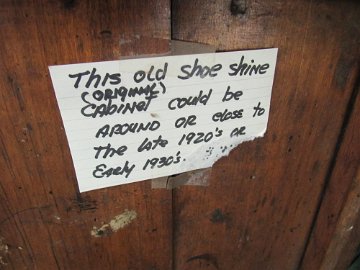 This old shoe shine
(ORIGINAL)
CABINET could be
AROUND OR close to
The late 1920's OR
Early 1930's.